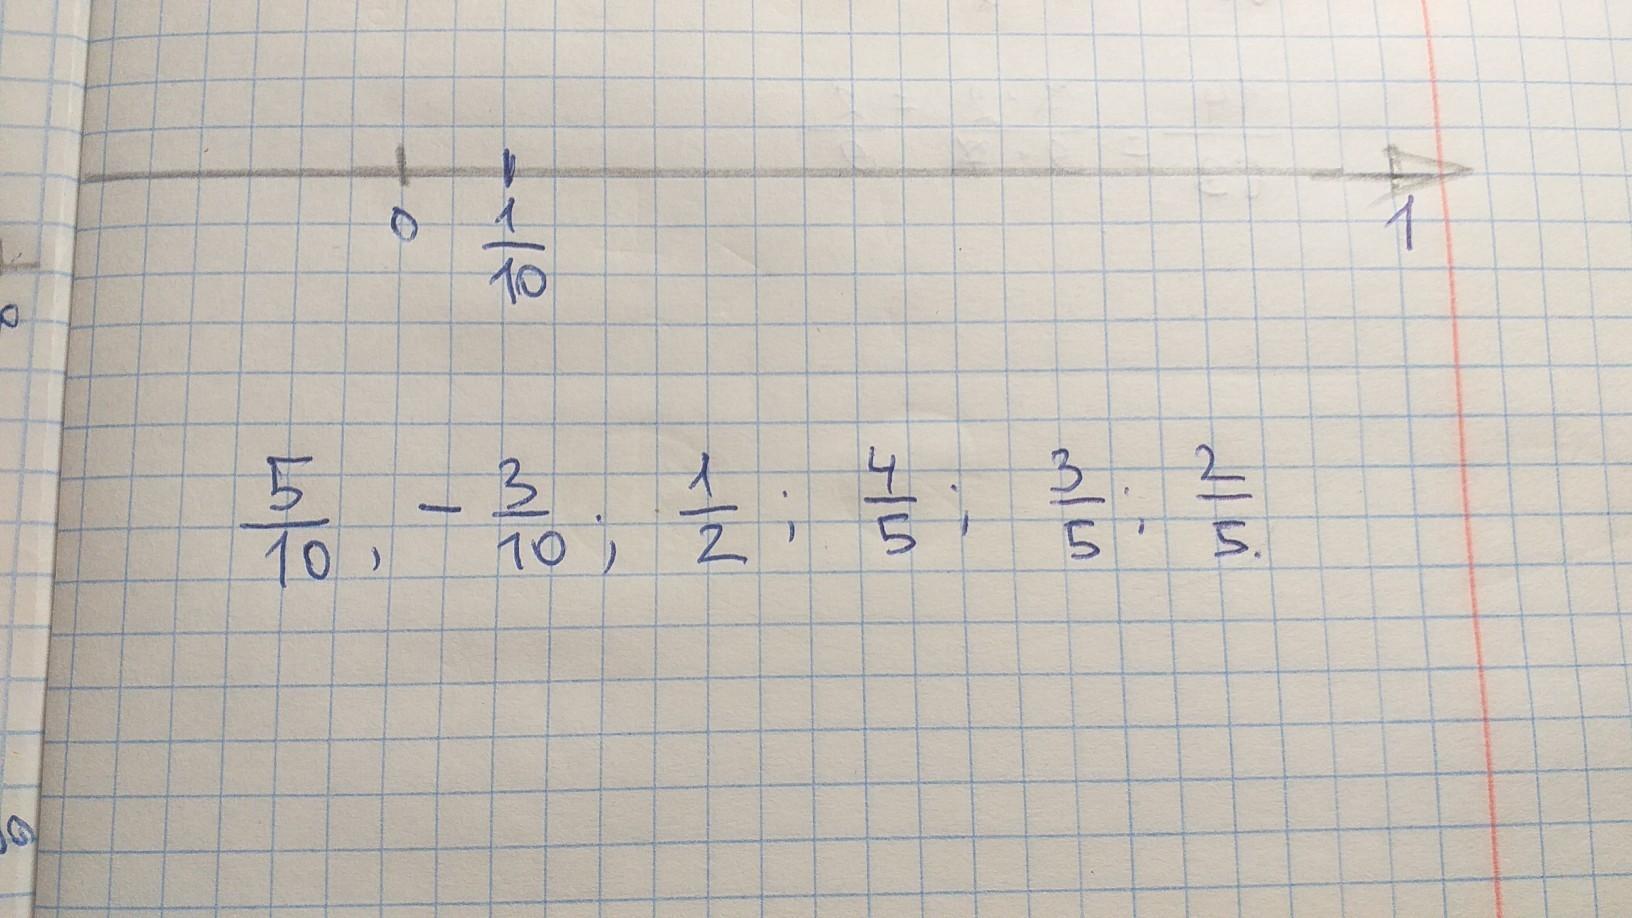 0 1/10 1
5/10, - 3/10; 1/2; 4/5; 3/5; 2/5.